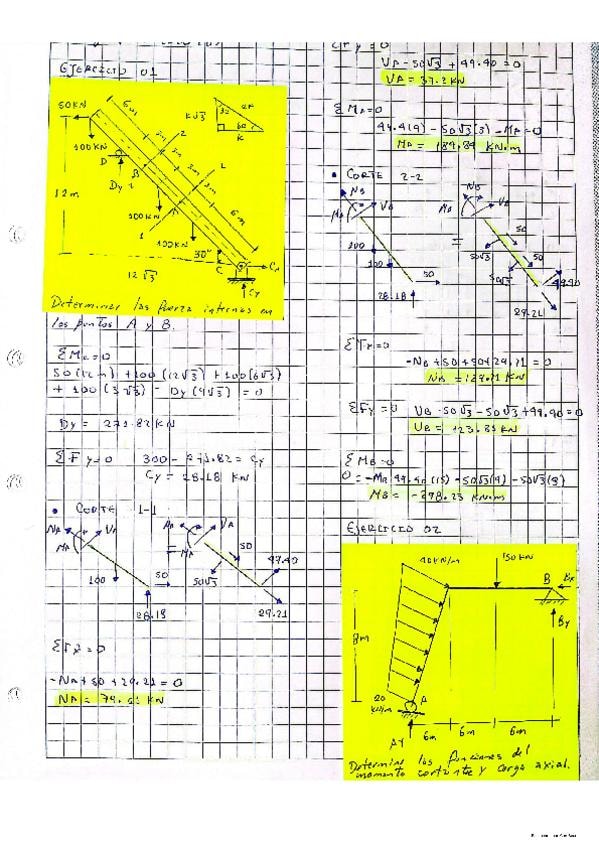 EJERCICIO 01
50KN
100KN
D
Dy
B
12m
6m
3m
3m
3m
3m
6m
2
2
1
1
K√3
2K
60
K
100KN
A
100KN
30°
C
Cx
Cy
12√3
Determinar las fuerza internas en
los puntos A y B.
ΣMc=0
50(12)+100(12√3)+100(6√3)
+100(3√3) - Dy(9√3) = 0
Dy = 271.82 KN
ΣFy=0 300-271.82 = Cy
Cy = 28.18 KN
• CORTE 1-1
NA
VA
MA
100
50
28.18
VA
MA
=
50
50√3
49.40
29.21
ΣFx=0
-NA+50+29.21=0
NA = 79.21 KN
ΣFy=0
VA-50√3+49.40=0
VA = 37.2KN
ΣMA=0
49.4(9)-50√3(3)-MA=0
MA = 184.84 KN.m
• CORTE 2-2
NB
MB
VB
100
100
50
28.18
=
NB
MB
VB
50
50√3
50
50√3
49.40
29.21
ΣFx=0
-NB+50+50+29.21=0
NB = 129.21 KN
ΣFy=0 VB-50√3-50√3+49.40=0
VB = 123.81 KN
ΣMB=0
MB = -298.23 KN.m
EJERCICIO 02
40KN/m
150KN
B
Bx
By
8m
20
KN/m
A
Ay
6m
6m
6m
Determinar las funciones del
momento cortante y carga axial.